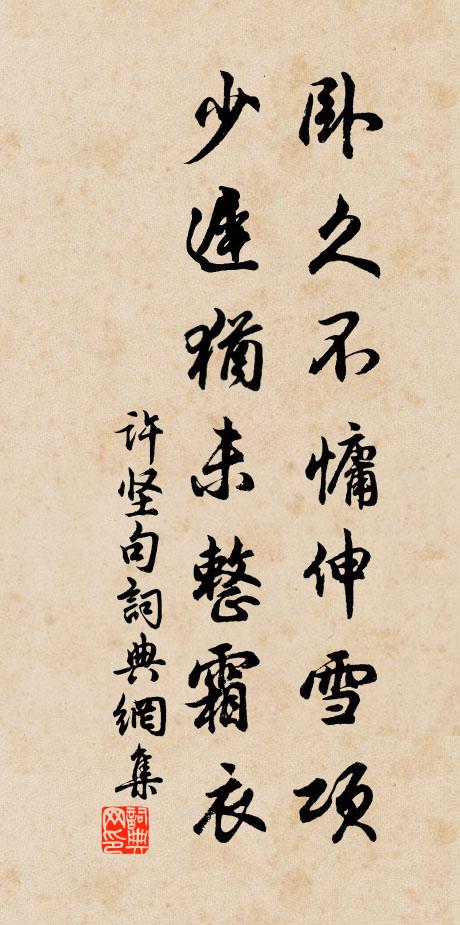 卧久不慵伸雪项
少遲猶未整霜衣
许坚句詞典網集
詞典网印